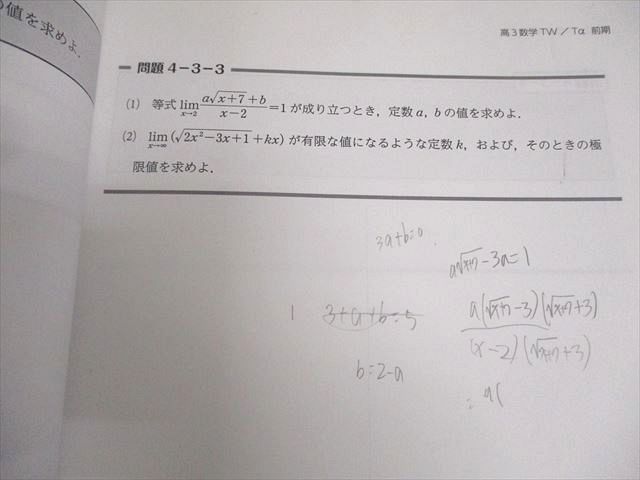 の値を求めよ.
高3数学TW／Tα 前期
問題 4－3－3
(1) 等式 lim_{x→2} (a√(x+7)+b)/(x−2) =1 が成り立つとき，定数 a, b の値を求めよ．
(2) lim_{x→∞} (√(2x²−3x+1)+kx) が有限な値になるような定数 k，および，そのときの極
限値を求めよ．
3a+b=0
a√(x+7)−3a=1
1 3+a+b=5
a(√(x+7)−3)(√(x+7)+3)
(x−2)(√(x+7)+3)
b=2−a
= a(